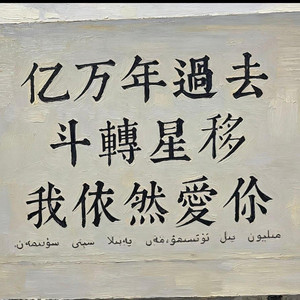 亿万年過去
斗轉星移
我依然愛你
مىليون يىل ئۆتسىمۇ،مەن يەنىلا سېنى سۆيىمەن.